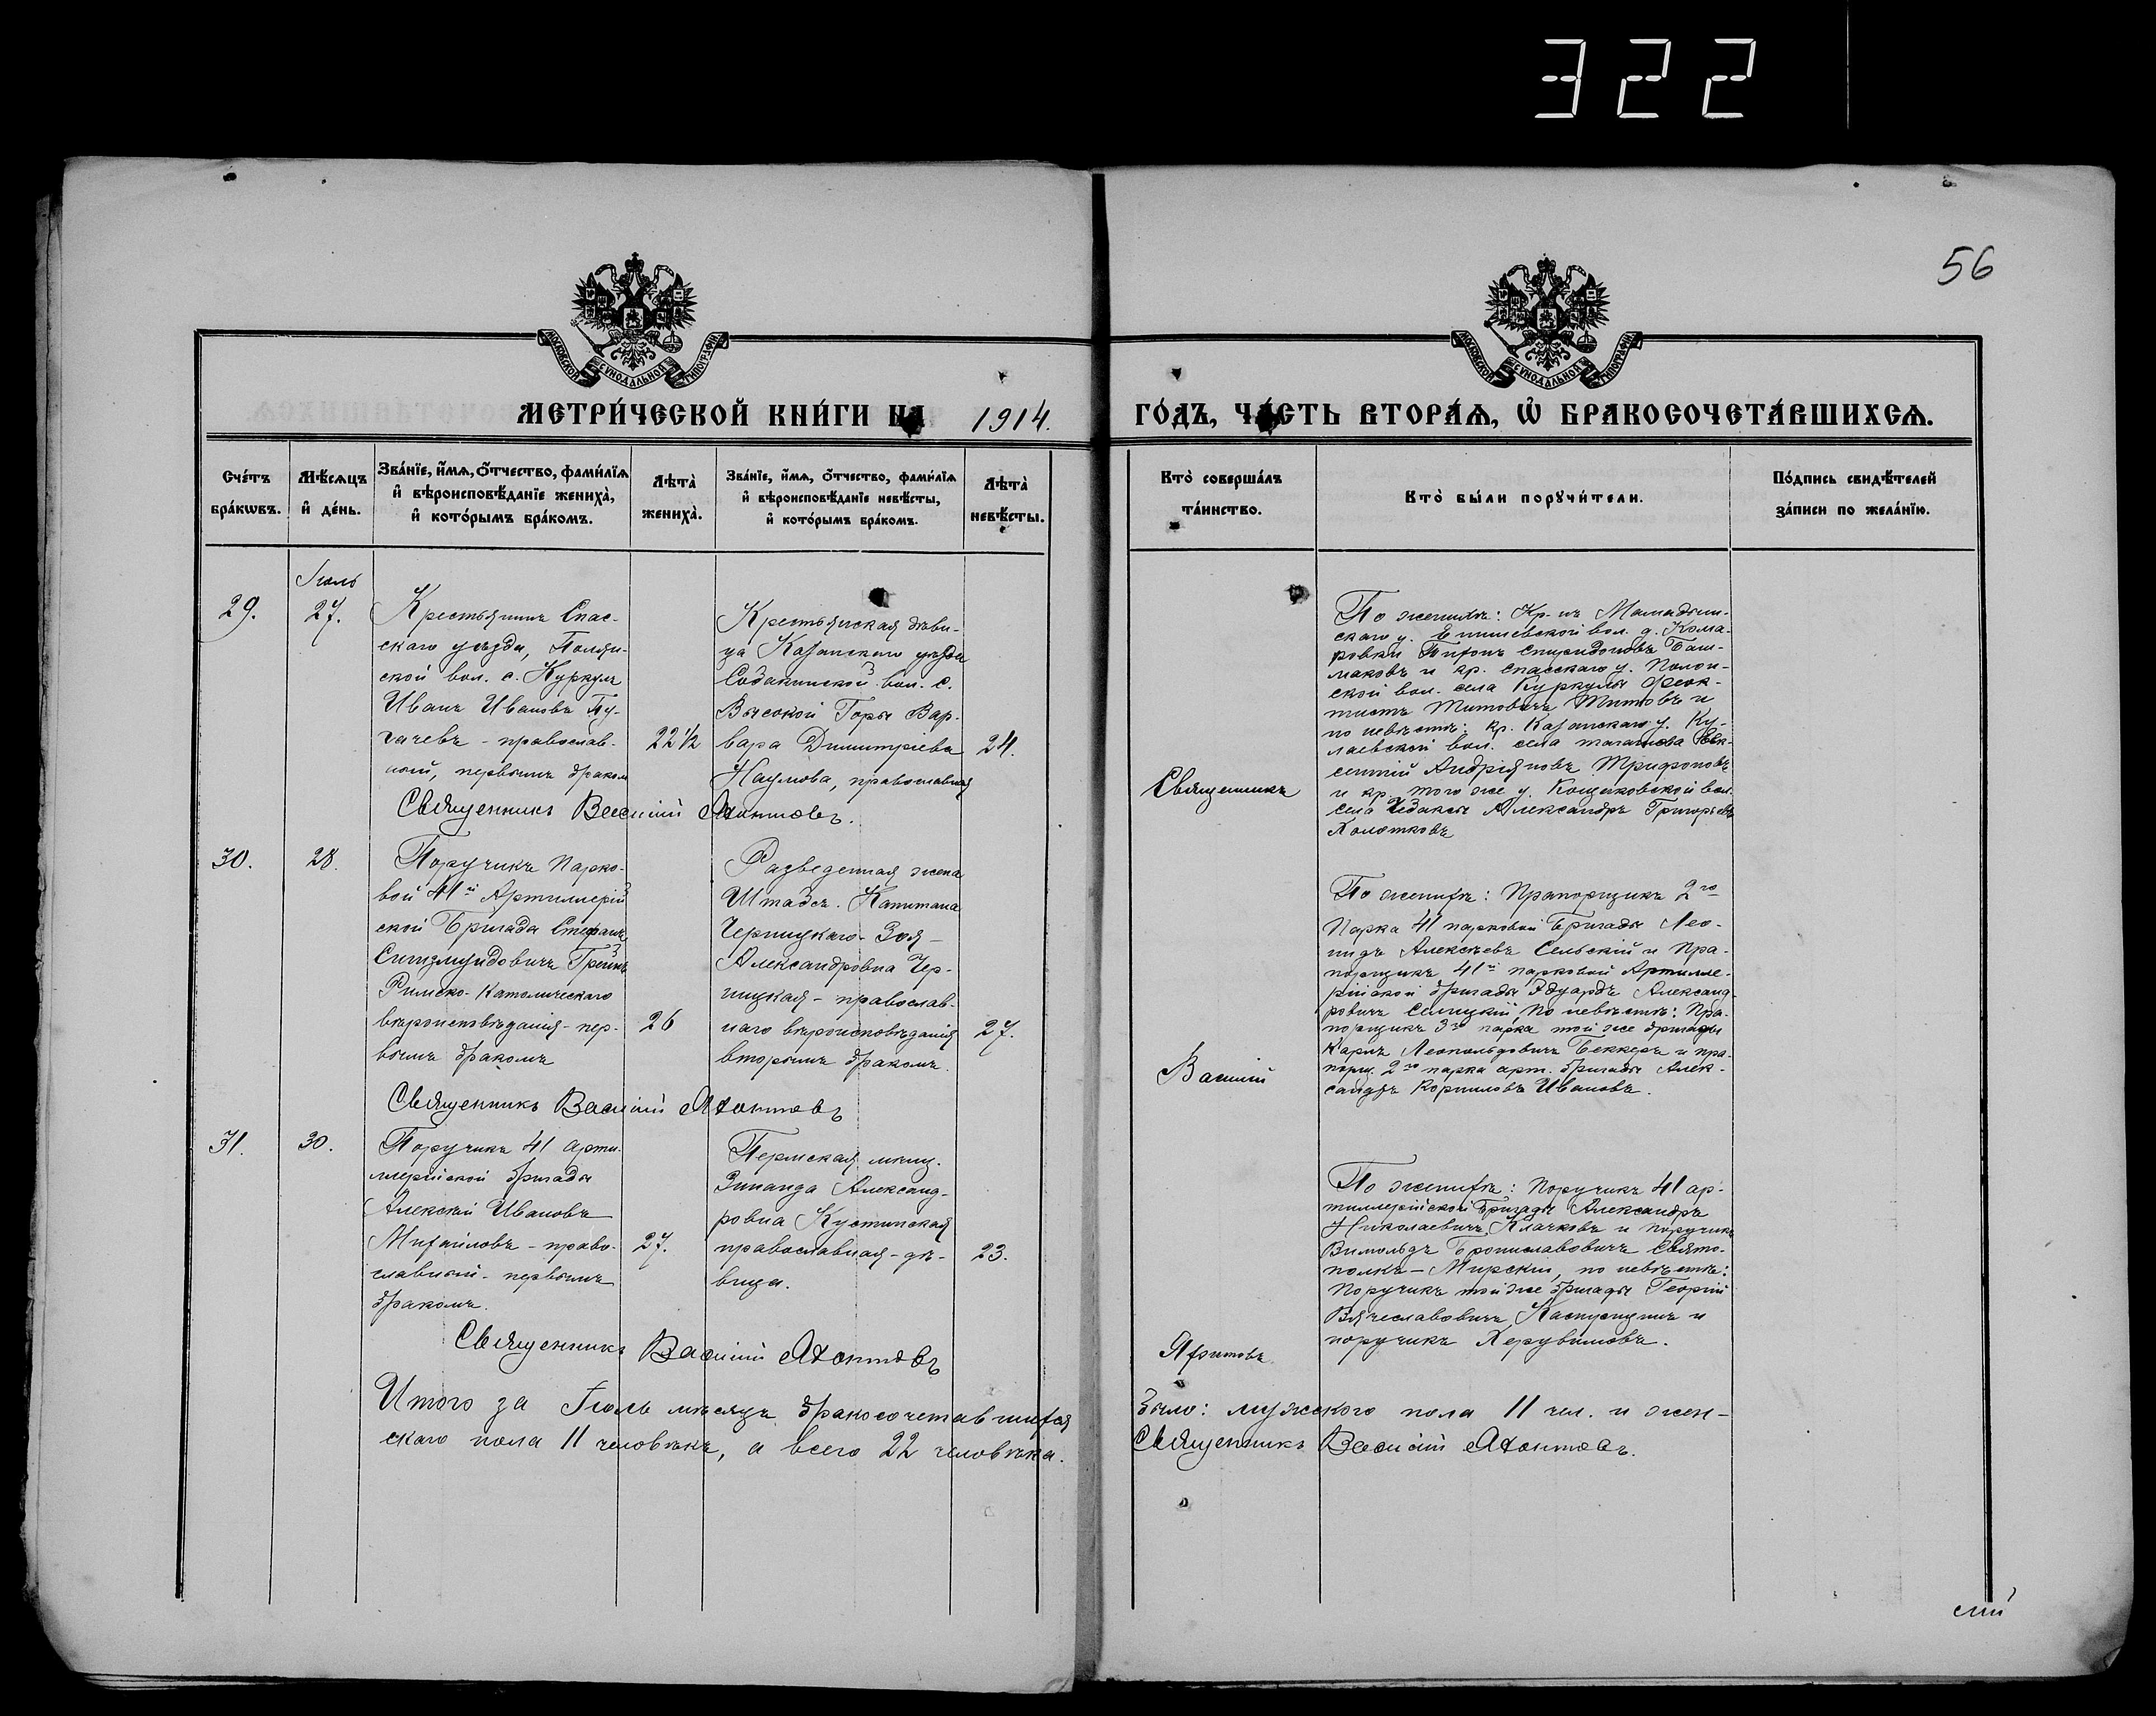 322
56
МОСКОВСКОЙ СѴНОДАЛЬНОЙ ТИПОГРАФІИ
МОСКОВСКОЙ СѴНОДАЛЬНОЙ ТИПОГРАФІИ
МЕТРИ́ЧЕСКОЙ КНИ́ГИ НА 1914. ГО́ДЪ, ЧА́СТЬ ВТОРА́Ѧ, Ѡ БРАКОСОЧЕТА́ВШИХСѦ.
Сче́тъ бра́кѡвъ.
Мѣ́сяцъ и де́нь.
Зва́нїе, и́мѧ, ѻ́тчество, фами́лїѧ и вѣроисповѣ́данїе жениха̀, и кото́рымъ бра́комъ.
Лѣта̀ жениха̀.
Зва́нїе, и́мѧ, ѻ́тчество, фами́лїѧ и вѣроисповѣ́данїе невѣ́сты, и кото́рымъ бра́комъ.
Лѣта̀ невѣ́сты.
Кто̀ соверша́лъ та́инство.
Кто̀ бы́ли порꙋчи́тели.
По́дпись свидѣ́телей за́писи по жела́нїю.
29.
Іюль
27.
Крестьянинъ Спас-
скаго уѣзда, Полян-
ской вол. с. Куркуль
Иванъ Ивановъ Пу-
гачевъ - православ-
ный, первымъ бракомъ
22 1/2
Крестьянская дѣви-
ца Казанскаго уѣзда
Собакинской вол. с.
Высокой Горы Вар-
вара Димитріева
Наумова, православная
24.
Священникъ Василій Аѳонтовъ.
Священникъ
По женихѣ: Кр-нъ Мамадыш-
скаго у. Енишевской вол. д. Кома-
ровки Тихонъ Спиридоновъ Баш-
маковъ и кр. Спасскаго у. Полян-
ской вол. села Куркулы Ѳеок-
тистъ Титовичъ Титовъ и
по невѣстѣ: кр. Казанскаго у. Ку-
лаевской вол. села
Андріяновъ Трифоновъ
и кр. того же у. Кощаковской вол.
села Александръ Григорьевъ
Холотковъ
30.
28.
Поручикъ Парко-
вой 41й Артиллерій
ской Бригады Стефанъ
Сигизмундовичъ
Римско-Католическаго
вѣроисповѣданія - пер-
вымъ бракомъ
26
Разведенная жена
Штабсъ-Капитана
Черницкаго - Зоя -
Александровна Чер-
ницкая - православ-
наго вѣроисповѣданія
вторымъ бракомъ
27.
Священникъ Василій Аѳонтовъ
Василій
По женихѣ: Прапорщикъ 2го
Парка 41 парковой Бригады Лео-
нидъ Алексѣевъ Сельскій и Пра-
порщикъ 41й парковой Артилле-
рійской бригады Эдуардъ Александ-
ровичъ По невѣстѣ: Пра-
порщикъ 3го парка той же бригады
Карлъ Леопольдовичъ Беккеръ и пра-
порщ. 2го парка арт. бригады Алек-
сандръ Корниловъ Ивановъ.
31.
30.
Поручикъ 41 арти-
ллерійской бригады
Алексѣй Ивановъ
Михайловъ - право-
славный - первымъ
бракомъ.
27.
Пермская мѣщ.
Зинаида Александ-
ровна Кустинская
православная - дѣ-
вица.
23.
Священникъ Василій Аѳонтовъ
По женихѣ: Поручикъ 41 ар-
тиллерійской Бригады Александръ
Николаевичъ Клачковъ и поручикъ
Витольдъ Брониславовичъ Свято-
полкъ - Мирскій, по невѣстѣ:
Поручикъ той же бригады Георгій
Вячеславовичъ и
поручикъ Херувимовъ.
Итого за Іюль мѣсяцъ бракосочетавшихся было: мужского пола 11 чел. и жен-
скаго пола 11 человѣкъ, а всего 22 человѣка. Священникъ Василій Аѳонтовъ.